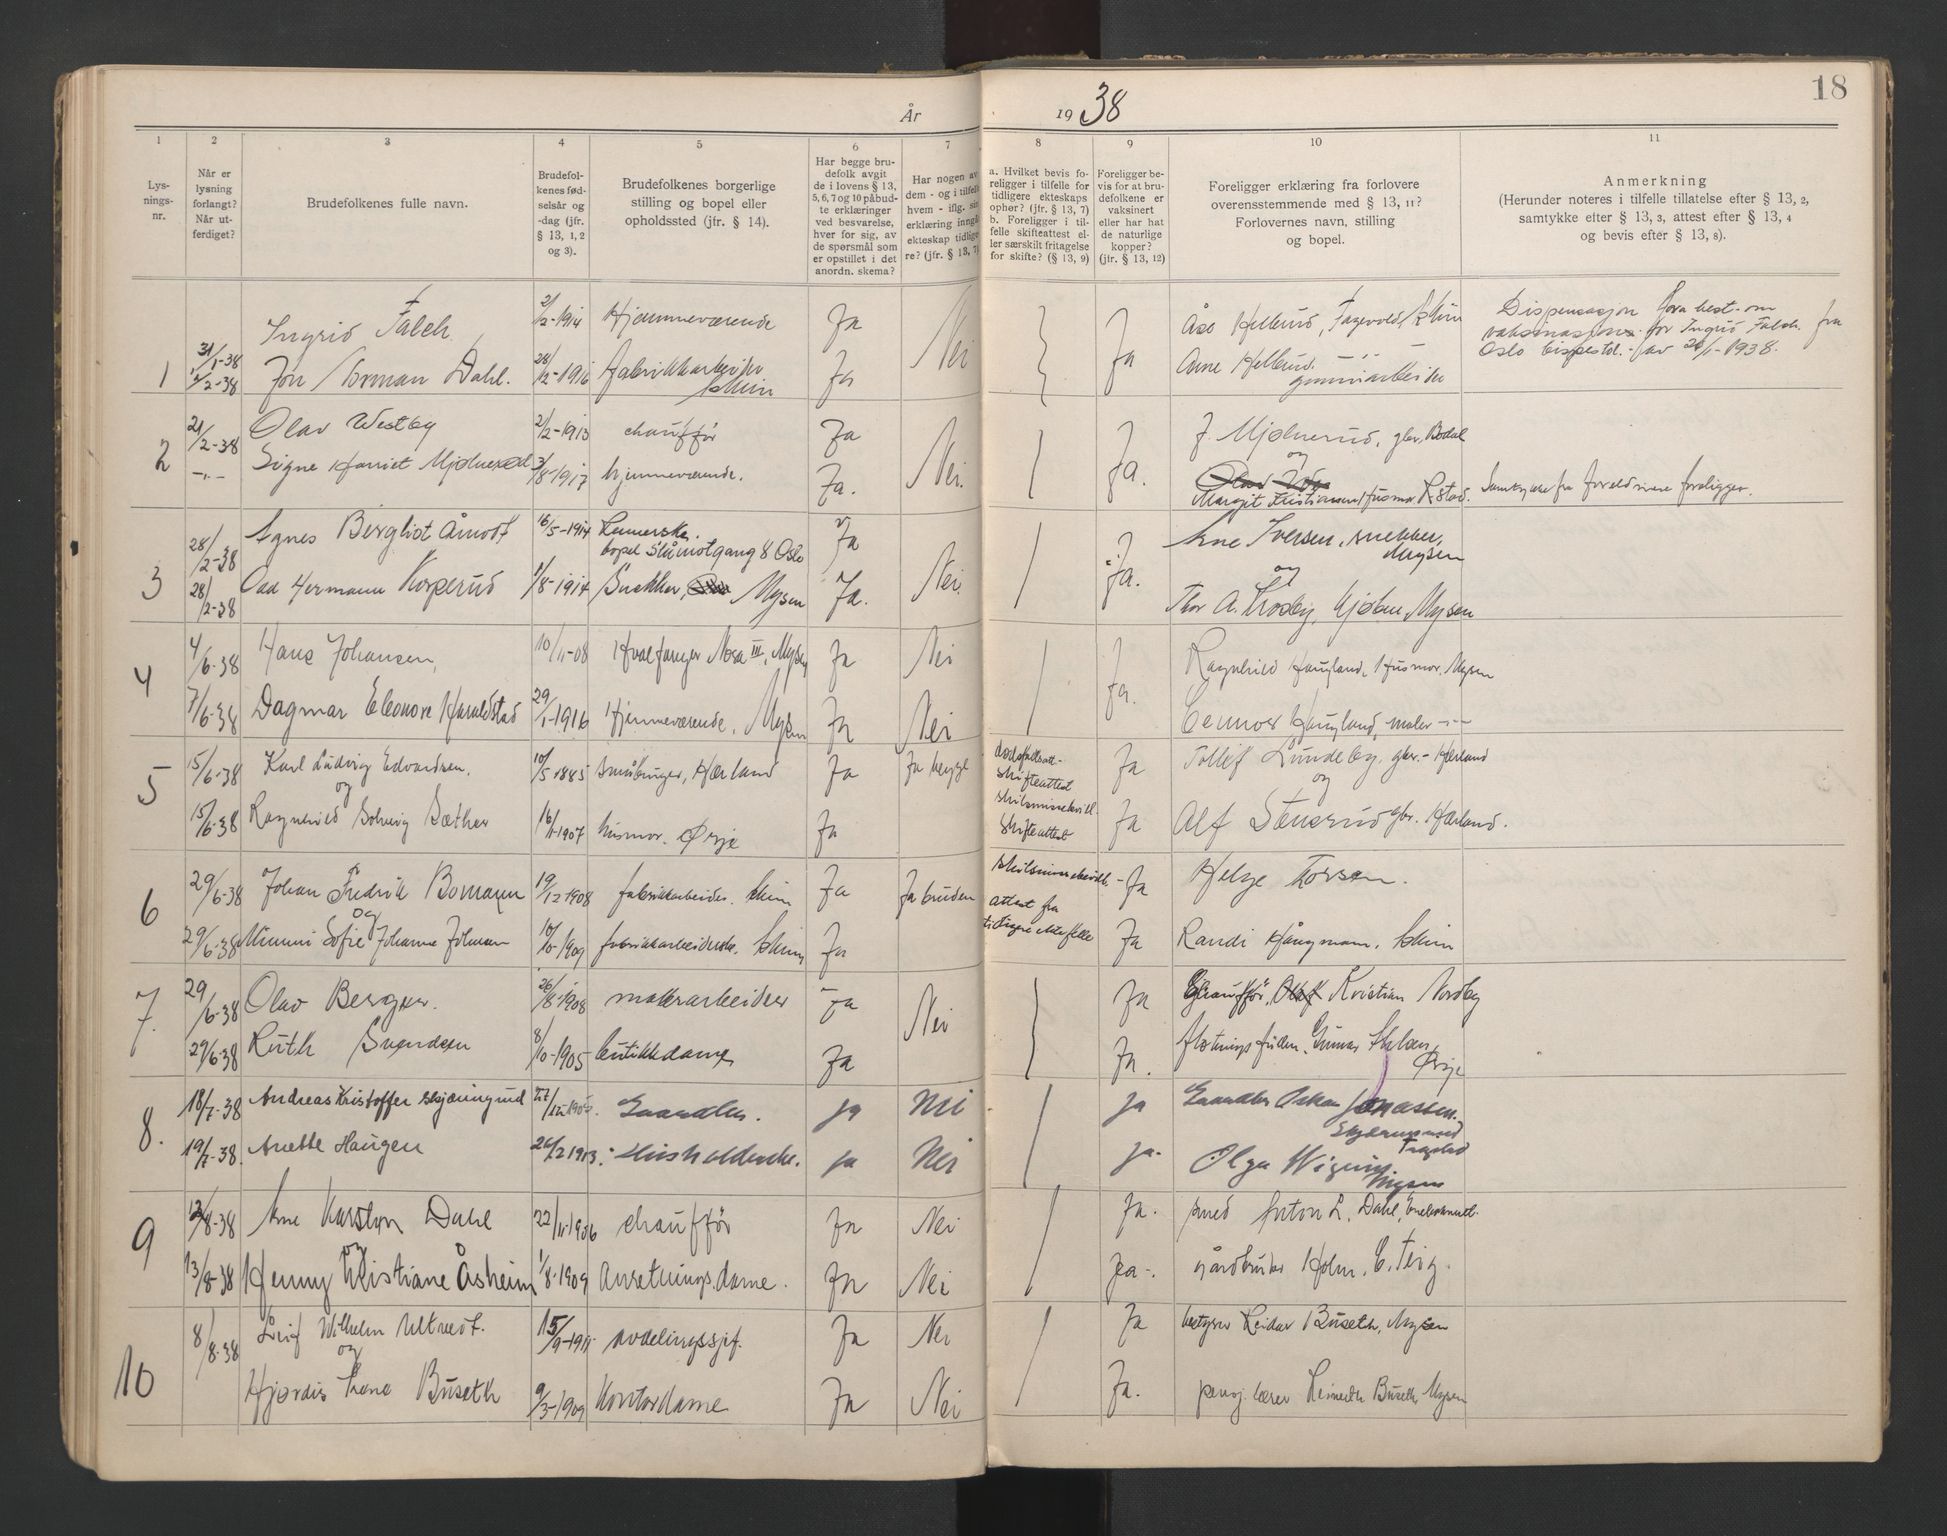 År 1938
18
1 2 3 4 5 6 7 8 9 10 11
Lys-
nings-
nr.
Når er
lysning
forlangt?
Når ut-
ferdiget?
Brudefolkenes fulle navn.
Brudefol-
kenes fød-
selsår og
-dag (jfr.
§ 13, 1, 2
og 3).
Brudefolkenes borgerlige
stilling og bopel eller
opholdssted (jfr. § 14).
Har begge bru-
defolk avgit
de i lovens § 13,
5, 6, 7 og 10 påbud-
te erklæringer
ved besvarelse,
hver for sig, av
de spørsmål som
er opstillet i det
anordn. skema?
Har nogen av
dem - og i tilfelle
hvem - iflg. sin
erklæring inngåt
ekteskap tidlige-
re? (jfr. § 13, 7)
a. Hvilket bevis fo-
religger i tilfelle for
tidligere ekteskaps
ophør? (jfr. § 13, 7)
b. Foreligger i til-
felle skifteattest el-
ler særskilt fritagelse
for skifte? (§ 13, 9)
Foreligger be-
vis for at bru-
defolkene er
vaksinert
eller har hat
de naturlige
kopper?
(jfr. § 13, 12)
Foreligger erklæring fra forlovere
overensstemmende med § 13, 11?
Forlovernes navn, stilling
og bopel.
Anmerkning
(Herunder noteres i tilfelle tillatelse efter § 13, 2,
samtykke efter § 13, 3, attest efter § 13, 4
og bevis efter § 13, 8).
Ingrid Falch 2/2-1914 Hjemmeværende Ja Nei Åse Hellerud, Fagevold, Skim
1 31/1-38 2/2-38 Jon Norman Dahl. 28/12-1916 Fabrikkarbeider Skim Ja Ja Anne Hellerud, gummiarbeider
Dispensasjon fra best. om
vaksinasjon for Ingrid Falch fra
Oslo bispestol av 26/1-1938.
2 21/2-38 Olav Westby 2/2-1913 chauffør Ja Nei. Ja. J. Mjølnerud, gbr, Bodal
og
-"- Signe Harriet Mjølnerød 3/8-1917 hjemmeværende. Ja. Margit Kristiansen, husmor Samtykke fra foreldrene foreligger.
3 28/2-38 Agnes Bergliot Åmodt 16/5-1914 bopel Ståmotgang 8 Oslo Ja Nei. Ja. Arne Iversen, snekker, Mysen
og
28/2-38 Odd Hermann Korperud 1/8-1914 Snekker, Mysen Ja. Thor A. Krosby, Mysen
4 4/6-38 Hans Johansen, 10/11-08 Hvalfanger Nosa III, Mysen Ja Nei Ja. Ragnhild Haugland, Husmor, Mysen
7/6-38 Dagmar Eleonore Haraldstad 29/1-1916 Hjemmeværende, Mysen Ja Nei Haugland, maler -"-
5 15/6-38 Karl Ludvig Edvardsen. 10/5-1885 småbruger, Hærland Ja Ja begge dødsfallsatt- skifteattest Ja Tollef Lundeby, gbr. - Hærland
og
15/6-38 Ragnhild Solveig Sæther 16/11-1907 husmor. Ørje Ja skilsmissebevill. skifteattest Ja Alf Stenerud gbr. Hærland.
6 29/6-38 Johan Fredrik Bomann 19/12-1908 fabrikkarbeider. Skim Ja Ja bruden skilsmissebevill. - Ja Helge Torsen.
og
29/6-38 Mimmi Sofie Johanne Johnsen 10/10-1909 fabrikkarbeiderske. Skim Ja attest fra tidligere ektefelle Ja Randi Haugmann, Skim
7. 29/6-38 Olav Berger. 26/8-1908 møllerarbeider Ja Nei Ja Chauffør, Kristian Nordby
29/6-38 Ruth Svendsen 8/10-1905 butikkdame Ja Ja. fløtningsfullm. Gunnar Ørje
8. 18/7-38 Andreas Kristoffer Skjæringrud 22/12-1905. Gaardbr. ja Nei ja Gaardbr Oskar Jonassen.
Trøgstad
19/7-38. Anette Haugen 26/2 1913. Husholderske. ja Nei ja. Olga Mysen
9 12/8-38 Arne Karsten Dahl 22/11-1906 chauffør Ja Nei Ja. smed Anton L. Dahl,
og
13/8-38 Henny Kristiane Åsheim 1/8-1909 Anretningsdame. Ja Nei Ja. gårdbruker Holm. E. Teig.
10 8/8-38 Leif Wilhelm Ultvedt. 15/9-1911 avdelingssjef. Ja Nei Ja bestyrer Reidar Buseth, Mysen
og
Hjørdis Irene Buseth 9/3-1909 Kontordame Ja Nei Ja. pensj. lærer Buseth, Mysen